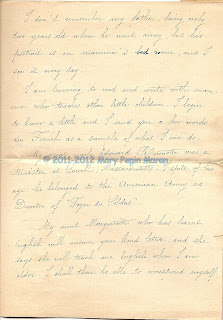 I don't remember my father, being only
two years old when he went away but his
portrait is in mamma's bed room, and I
see it every day.
I am learning to read and write with mam-
ma who teaches other little children. I begin
to know a little and I send you a few words
in French as a sample of what I can do.
was a
© 2011-2012 Mary Pepin Moran
Minister at Lowell, Massachusetts. I spoke of
ago he belonged to the American Army as
Director of "Foyer du Soldat"
My aunt Marguerite who has learnt
english will answer your kind letter, and she
says she will teach me english when I am
older. I shall then be able to correspond myself